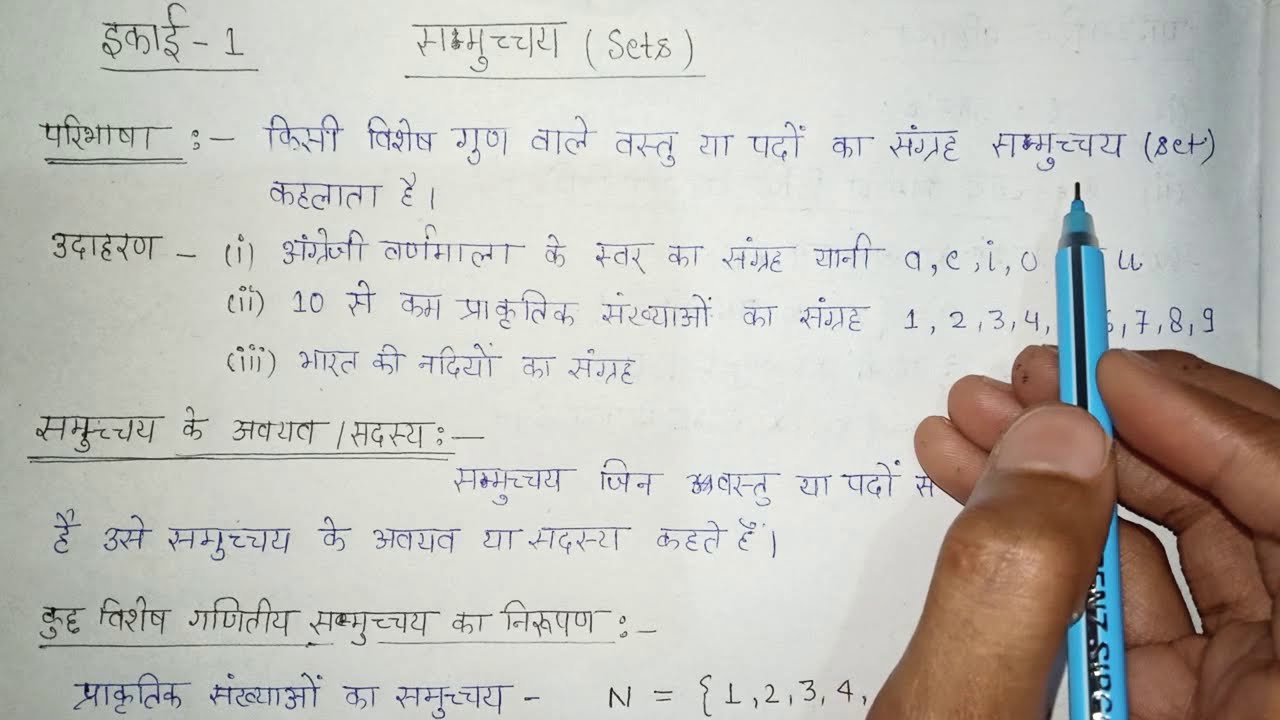 इकाई - 1 समुच्चय (Sets)
परिभाषा :- किसी विशेष गुण वाले वस्तु या पदों का संग्रह समुच्चय (set)
कहलाता है।
उदाहरण - (i) अंग्रेजी वर्णमाला के स्वर का संग्रह यानी a, e, i, o u
(ii) 10 से कम प्राकृतिक संख्याओं का संग्रह 1, 2, 3, 4, 6, 7, 8, 9
(iii) भारत की नदियों का संग्रह
समुच्चय के अवयव / सदस्य :-
समुच्चय जिन वस्तु या पदों स
है उसे समुच्चय के अवयव या सदस्य कहते हैं।
कुछ विशेष गणितीय समुच्चय का निरूपण :-
प्राकृतिक संख्याओं का समुच्चय - N = { 1, 2, 3, 4,